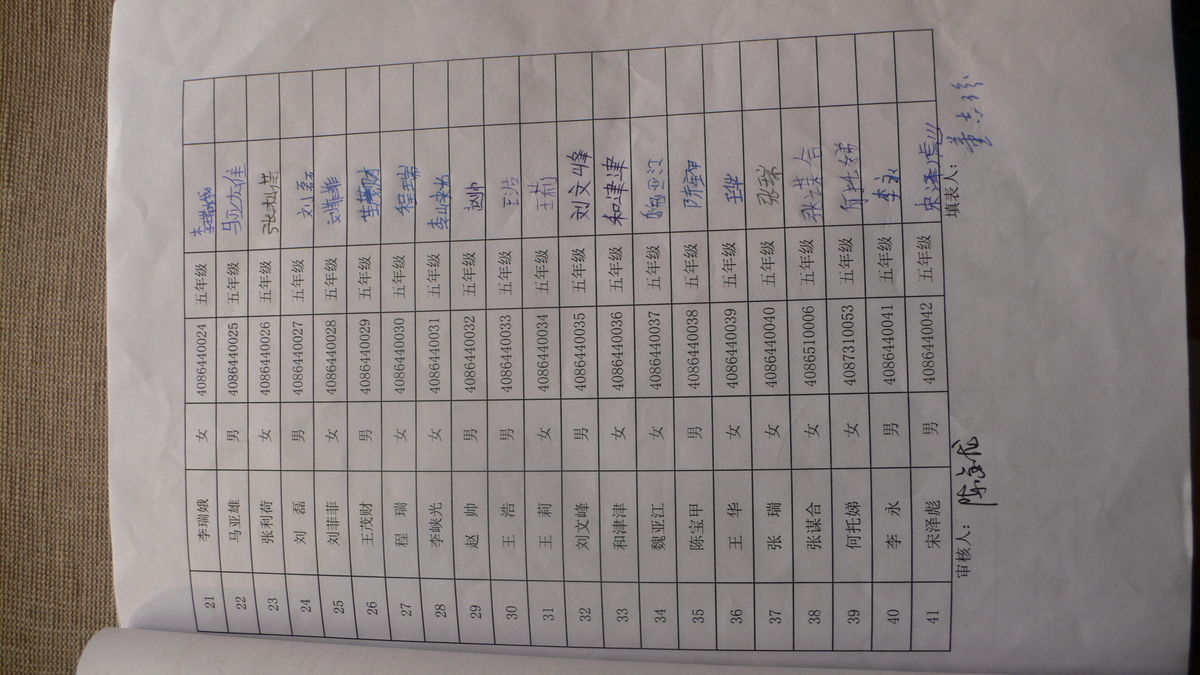 21 李瑞娥 女 4086440024 五年级 李瑞娥
22 马亚雄 男 4086440025 五年级 马亚雄
23 张利荷 女 4086440026 五年级 张利荷
24 刘 磊 男 4086440027 五年级 刘磊
25 刘菲菲 女 4086440028 五年级 刘菲菲
26 王茂财 男 4086440029 五年级 王茂财
27 程 瑞 女 4086440030 五年级 程瑞
28 李峡光 女 4086440031 五年级 李峡光
29 赵 帅 男 4086440032 五年级 赵帅
30 王 浩 男 4086440033 五年级 王浩
31 王 莉 女 4086440034 五年级 王莉
32 刘文峰 男 4086440035 五年级 刘文峰
33 和津津 女 4086440036 五年级 和津津
34 魏亚江 女 4086440037 五年级 魏亚江
35 陈宝甲 男 4086440038 五年级 陈宝甲
36 王 华 女 4086440039 五年级 王华
37 张 瑞 女 4086440040 五年级 张瑞
38 张谋合 女 4086510006 五年级 张谋合
39 何托娣 女 4087310053 五年级 何托娣
40 李 永 男 4086440041 五年级 李永
41 宋泽彪 男 4086440042 五年级 宋泽彪
审核人： 填表人：